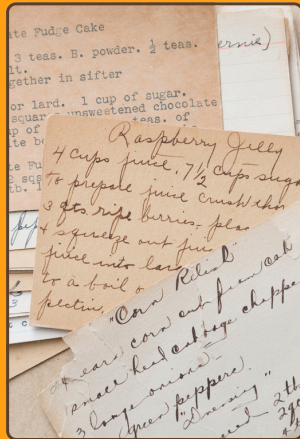 ate Fudge Cake
3 teas. B. powder. ½ teas.
lt.
gether in sifter
or lard. 1 cup of sugar.
squar unsweetened chocolate
up of teas. of
te be
te Fu
2 sqs
tb. 1
ernie)
Raspberry Jelly
4 cups juice, 7½ cups suga
to prepare juice crush thor
3 qts. ripe berries, plac
& squeeze out jui
juice into larg
to a boil o
pectin,
"Corn Relish"
ears corn cut from cob
small head cabbage choppe
3 large onions
green peppers.
"Dressing"
2 tb